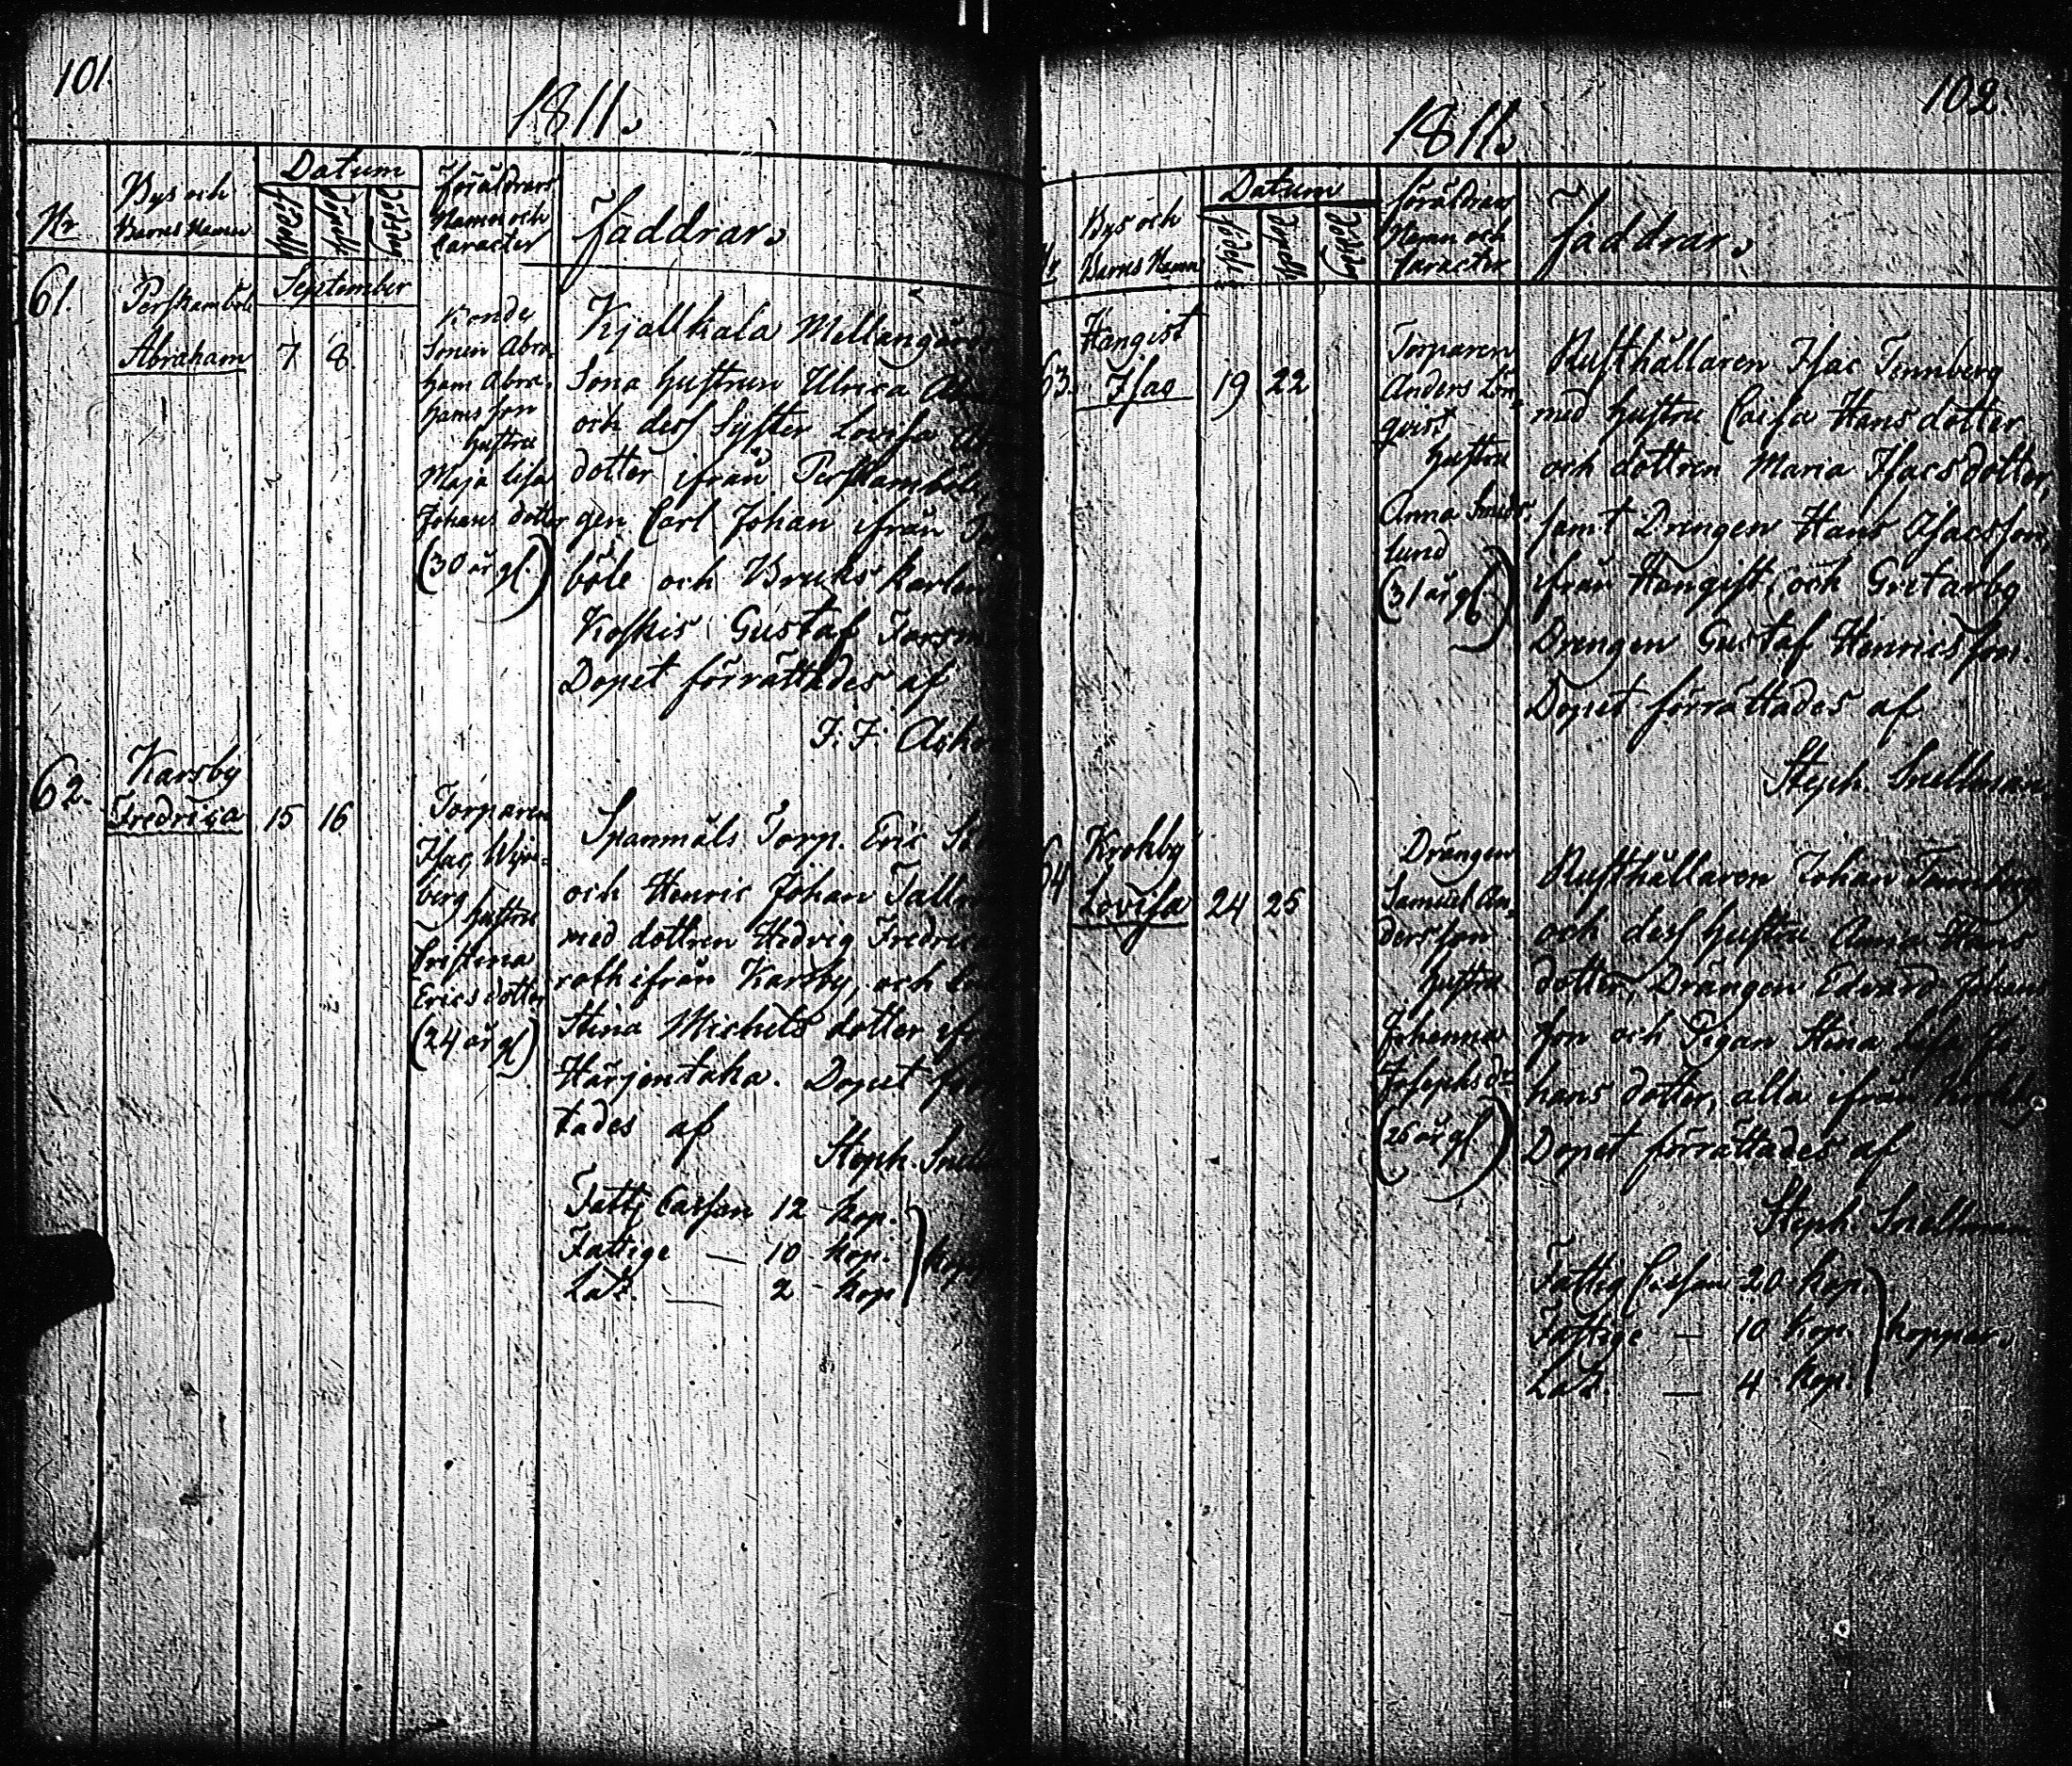 101.
1811.
Nr
Bys och
Barns Namn
Datum
Född
Döpt
Föräldrars
Namn och
Caracter
Faddrar.
September
61.
Perskamböle
Abraham 7 8
Bonde
Sonen Abra-
ham Abra-
hamsson
hustru
Maja Lisa
Johans dotter
(30 år gl.)
Kjallkala Mellangård
Sona hustrun Ulrica
och dess Syster Lovisa
dotter ifrån Perskamböle,
gen Carl Johan ifrån
böle och Bruks karlen
Koskis Gustaf
Dopet förrättades af
J. F.
62.
Karsby
Fredrica 15 16
Torparen
Isac
berg hustru
Cristina
Erics dotter
(24 år gl)
Spanmåls Torp. Eric
och Henric Johan
med dottren Hedvig
roth ifrån Karsby, och
Stina Michels dotter
Härjentaka. Dopet
tades af
Steph.
Fattig Cassan 12 kop.
Fattige — 10 kop.
Las. — 2 kop
102.
1811.
Bys och
Barns Namn
Datum
Född
Döpt
Föräldrars
Namn och
Caracter
Faddrar.
63.
Hangist
Isac 19 22
Torparen
Anders Lön-
qvist
hustru
Anna
lund
(31 år gl.)
Rusthållaren Isac Tennberg
med hustru Caisa Hans dotter
och dottren Maria Isacs dotter,
samt Drengen Hans Isacsson,
ifrån Hangist, och Gretarby
Drengen Gustaf Henricsson.
Dopet förrättades af
Steph. Snellman.
64
Krokby
Lovisa 24 25
Drängen
Samuel An-
dersson
hustru
Johanna
Josephs dr
(26 år gl.)
Rusthållaren Johan Tennberg
och dess hustru Anna Hans
dotter, Drängen Edvard Johans
son och Pigan Stina Lisa Jo-
hans dotter, alla ifrån Krokby
Dopet förrättades af
Steph. Snellman
Fattig Cassan 20 kop.
Fattige — 10 kop. koppar.
Las. — 4 kop.